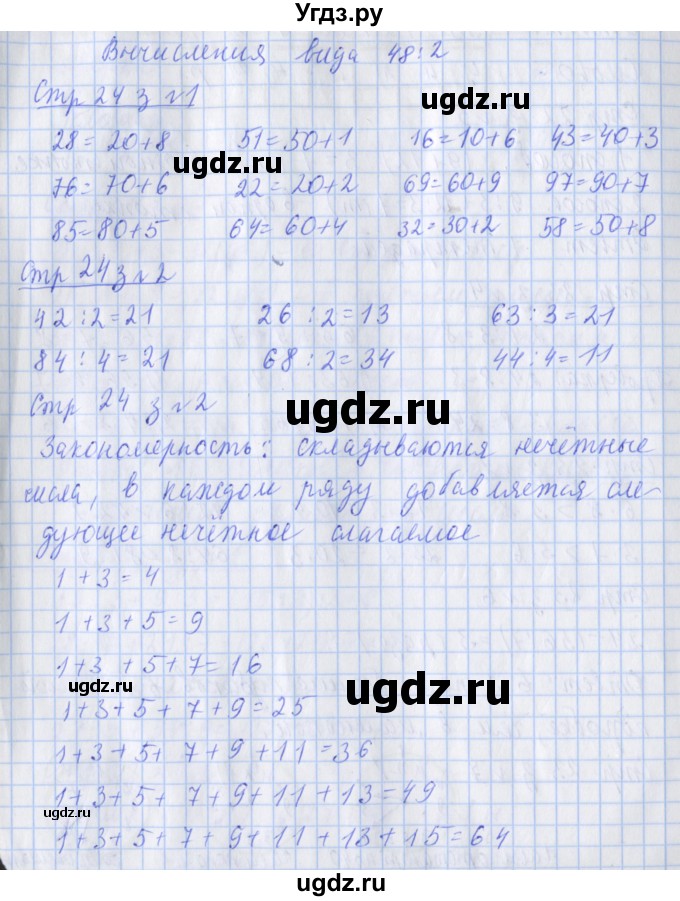 Угдз.ру
Вычисления вида 48:2
Стр 24 з №1
28=20+8 51=50+1 16=10+6 43=40+3
ugdz.ru ugdz.ru
76=70+6 22=20+2 69=60+9 97=90+7
85=80+5 64=60+4 32=30+2 58=50+8
ugdz.ru
Стр 24 з №2
42:2=21 26:2=13 63:3=21
84:4=21 68:2=34 44:4=11
Стр 24 з №2
ugdz.ru
Закономерность: складываются нечётные
числа, в каждом ряду добавляется сле-
дующее нечётное слагаемое
1+3=4
1+3+5=9
1+3+5+7=16
ugdz.ru ugdz.ru
1+3+5+7+9=25
1+3+5+7+9+11=36
1+3+5+7+9+11+13=49
ugdz.ru
1+3+5+7+9+11+13+15=64
ugdz.ru